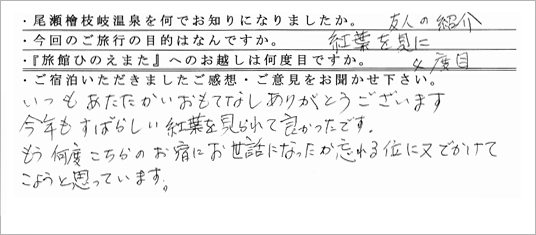 ・尾瀬檜枝岐温泉を何でお知りになりましたか。 友人の紹介
・今回のご旅行の目的はなんですか。 紅葉を見に
・『旅館ひのえまた』へのお越しは何度目ですか。 4度目
・ご宿泊いただきましたご感想・ご意見をお聞かせ下さい。
いつもあたたかいおもてなしありがとうございます
今年もすばらしい紅葉を見られて良かったです。
もう何度こちらのお宿にお世話になったか忘れる位に又でかけて
こようと思っています。